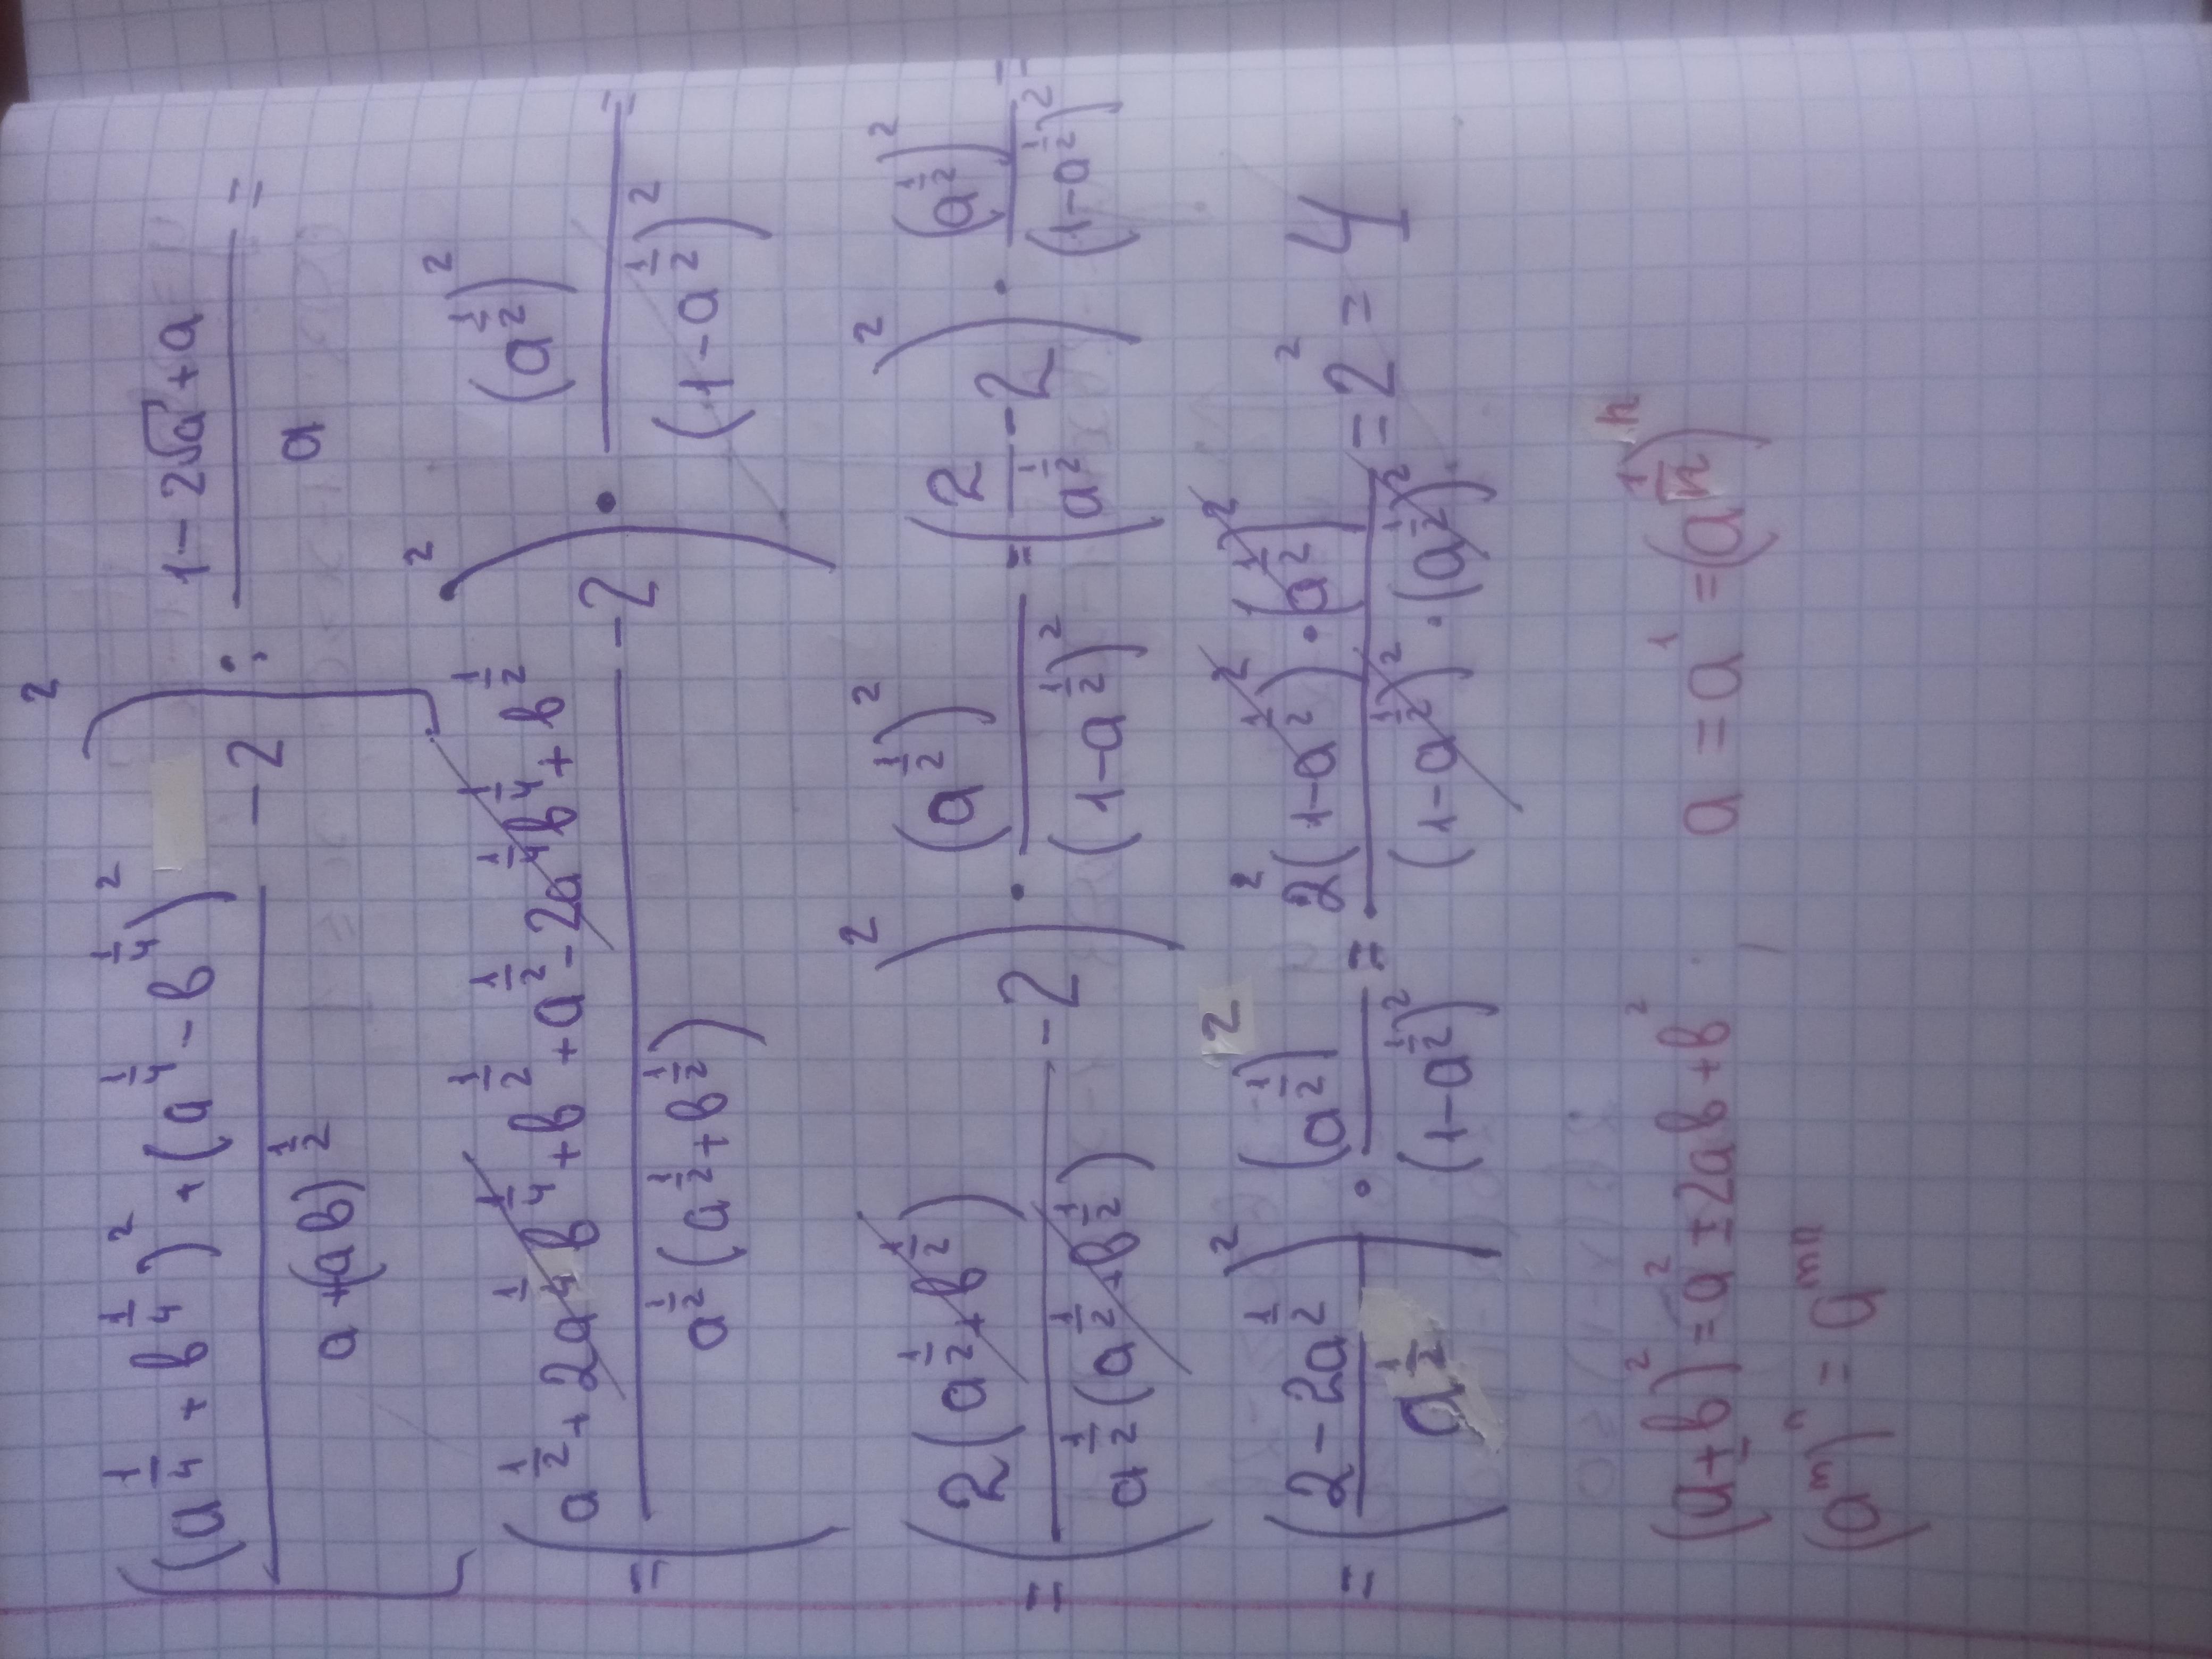 [((a^(1/4) + b^(1/4))² + (a^(1/4) - b^(1/4))²) / (a + (ab)^(1/2)) - 2]² : (1 - 2√a + a) / a =
= ((a^(1/2) + 2a^(1/4)b^(1/4) + b^(1/2) + a^(1/2) - 2a^(1/4)b^(1/4) + b^(1/2)) / (a^(1/2)(a^(1/2) + b^(1/2))) - 2)² · (a^(1/2))² / (1 - a^(1/2))² =
= (2(a^(1/2) + b^(1/2)) / (a^(1/2)(a^(1/2) + b^(1/2))) - 2)² · (a^(1/2))² / (1 - a^(1/2))² = (2 / a^(1/2) - 2)² · (a^(1/2))² / (1 - a^(1/2))² =
= ((2 - 2a^(1/2)) / a^(1/2))² · (a^(1/2))² / (1 - a^(1/2))² = 2²(1 - a^(1/2))² · (a^(1/2))² / ((1 - a^(1/2))² · (a^(1/2))²) = 2² = 4
(a ± b)² = a² ± 2ab + b² a = a¹ = (a^(1/n))^n
(a^m)^n = a^(mn)